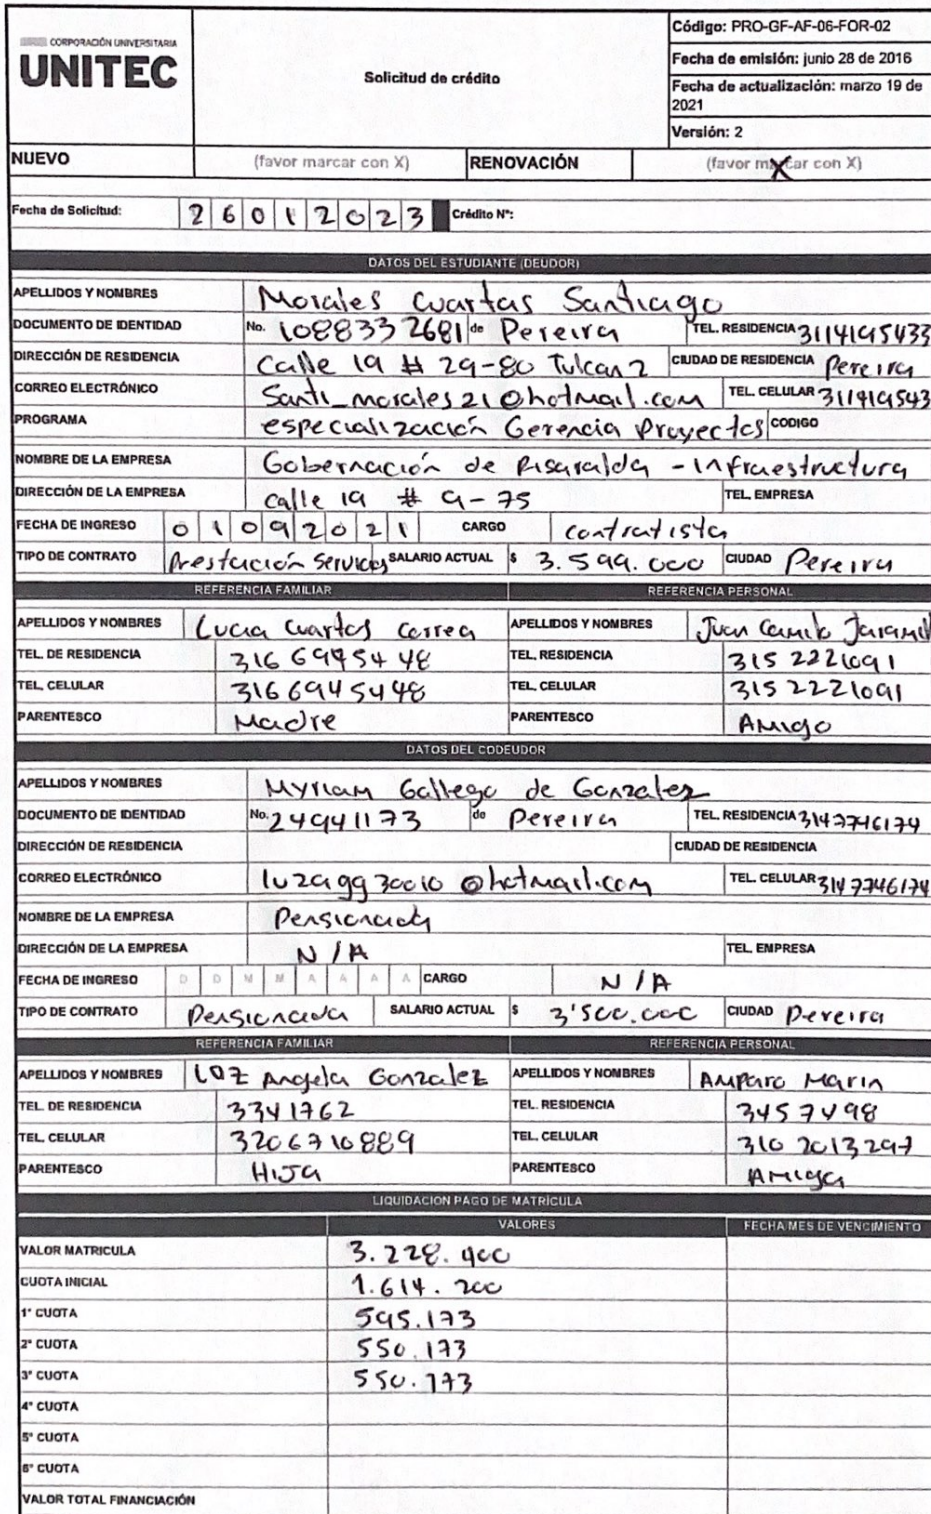 CORPORACIÓN UNIVERSITARIA
UNITEC
Solicitud de crédito
Código: PRO-GF-AF-06-FOR-02
Fecha de emisión: junio 28 de 2016
Fecha de actualización: marzo 19 de 2021
Versión: 2
NUEVO (favor marcar con X) RENOVACIÓN (favor marcar con X) X
Fecha de Solicitud: 26012023 Crédito N°:
DATOS DEL ESTUDIANTE (DEUDOR)
APELLIDOS Y NOMBRES Morales Cuartas Santiago
DOCUMENTO DE IDENTIDAD No. 1088332681 de Pereira TEL. RESIDENCIA 3114195433
DIRECCIÓN DE RESIDENCIA Calle 19 # 29-80 Tulcan 2 CIUDAD DE RESIDENCIA Pereira
CORREO ELECTRÓNICO Santi_morales21@hotmail.com TEL. CELULAR 311419543
PROGRAMA especialización Gerencia Proyectos CODIGO
NOMBRE DE LA EMPRESA Gobernación de Risaralda - Infraestructura
DIRECCIÓN DE LA EMPRESA calle 19 # 9-75 TEL. EMPRESA
FECHA DE INGRESO 01092021 CARGO contratista
TIPO DE CONTRATO Prestación Servicios SALARIO ACTUAL $ 3.599.000 CIUDAD Pereira
REFERENCIA FAMILIAR REFERENCIA PERSONAL
APELLIDOS Y NOMBRES Lucia Cuartas Correa APELLIDOS Y NOMBRES Juan Camilo Jaramil
TEL. DE RESIDENCIA 3166945448 TEL. RESIDENCIA 3152221091
TEL. CELULAR 3166945448 TEL. CELULAR 3152221091
PARENTESCO Madre PARENTESCO Amigo
DATOS DEL CODEUDOR
APELLIDOS Y NOMBRES Myriam Gallego de Gonzalez
DOCUMENTO DE IDENTIDAD No. 24941173 de Pereira TEL. RESIDENCIA 3147746174
DIRECCIÓN DE RESIDENCIA CIUDAD DE RESIDENCIA
CORREO ELECTRÓNICO luzagg30010@hotmail.com TEL. CELULAR 3147746174
NOMBRE DE LA EMPRESA Pensionada
DIRECCIÓN DE LA EMPRESA N/A TEL. EMPRESA
FECHA DE INGRESO D D M M A A A A CARGO N/A
TIPO DE CONTRATO Pensionada SALARIO ACTUAL $ 3'500.000 CIUDAD Pereira
REFERENCIA FAMILIAR REFERENCIA PERSONAL
APELLIDOS Y NOMBRES LUZ Angela Gonzalez APELLIDOS Y NOMBRES Amparo Marin
TEL. DE RESIDENCIA 3341762 TEL. RESIDENCIA 3457498
TEL. CELULAR 3206710889 TEL. CELULAR 3102013297
PARENTESCO Hija PARENTESCO Amiga
LIQUIDACION PAGO DE MATRÍCULA
VALORES FECHA/MES DE VENCIMIENTO
VALOR MATRICULA 3.228.400
CUOTA INICIAL 1.614.200
1° CUOTA 595.173
2° CUOTA 550.173
3° CUOTA 550.173
4° CUOTA
5° CUOTA
6° CUOTA
VALOR TOTAL FINANCIACIÓN